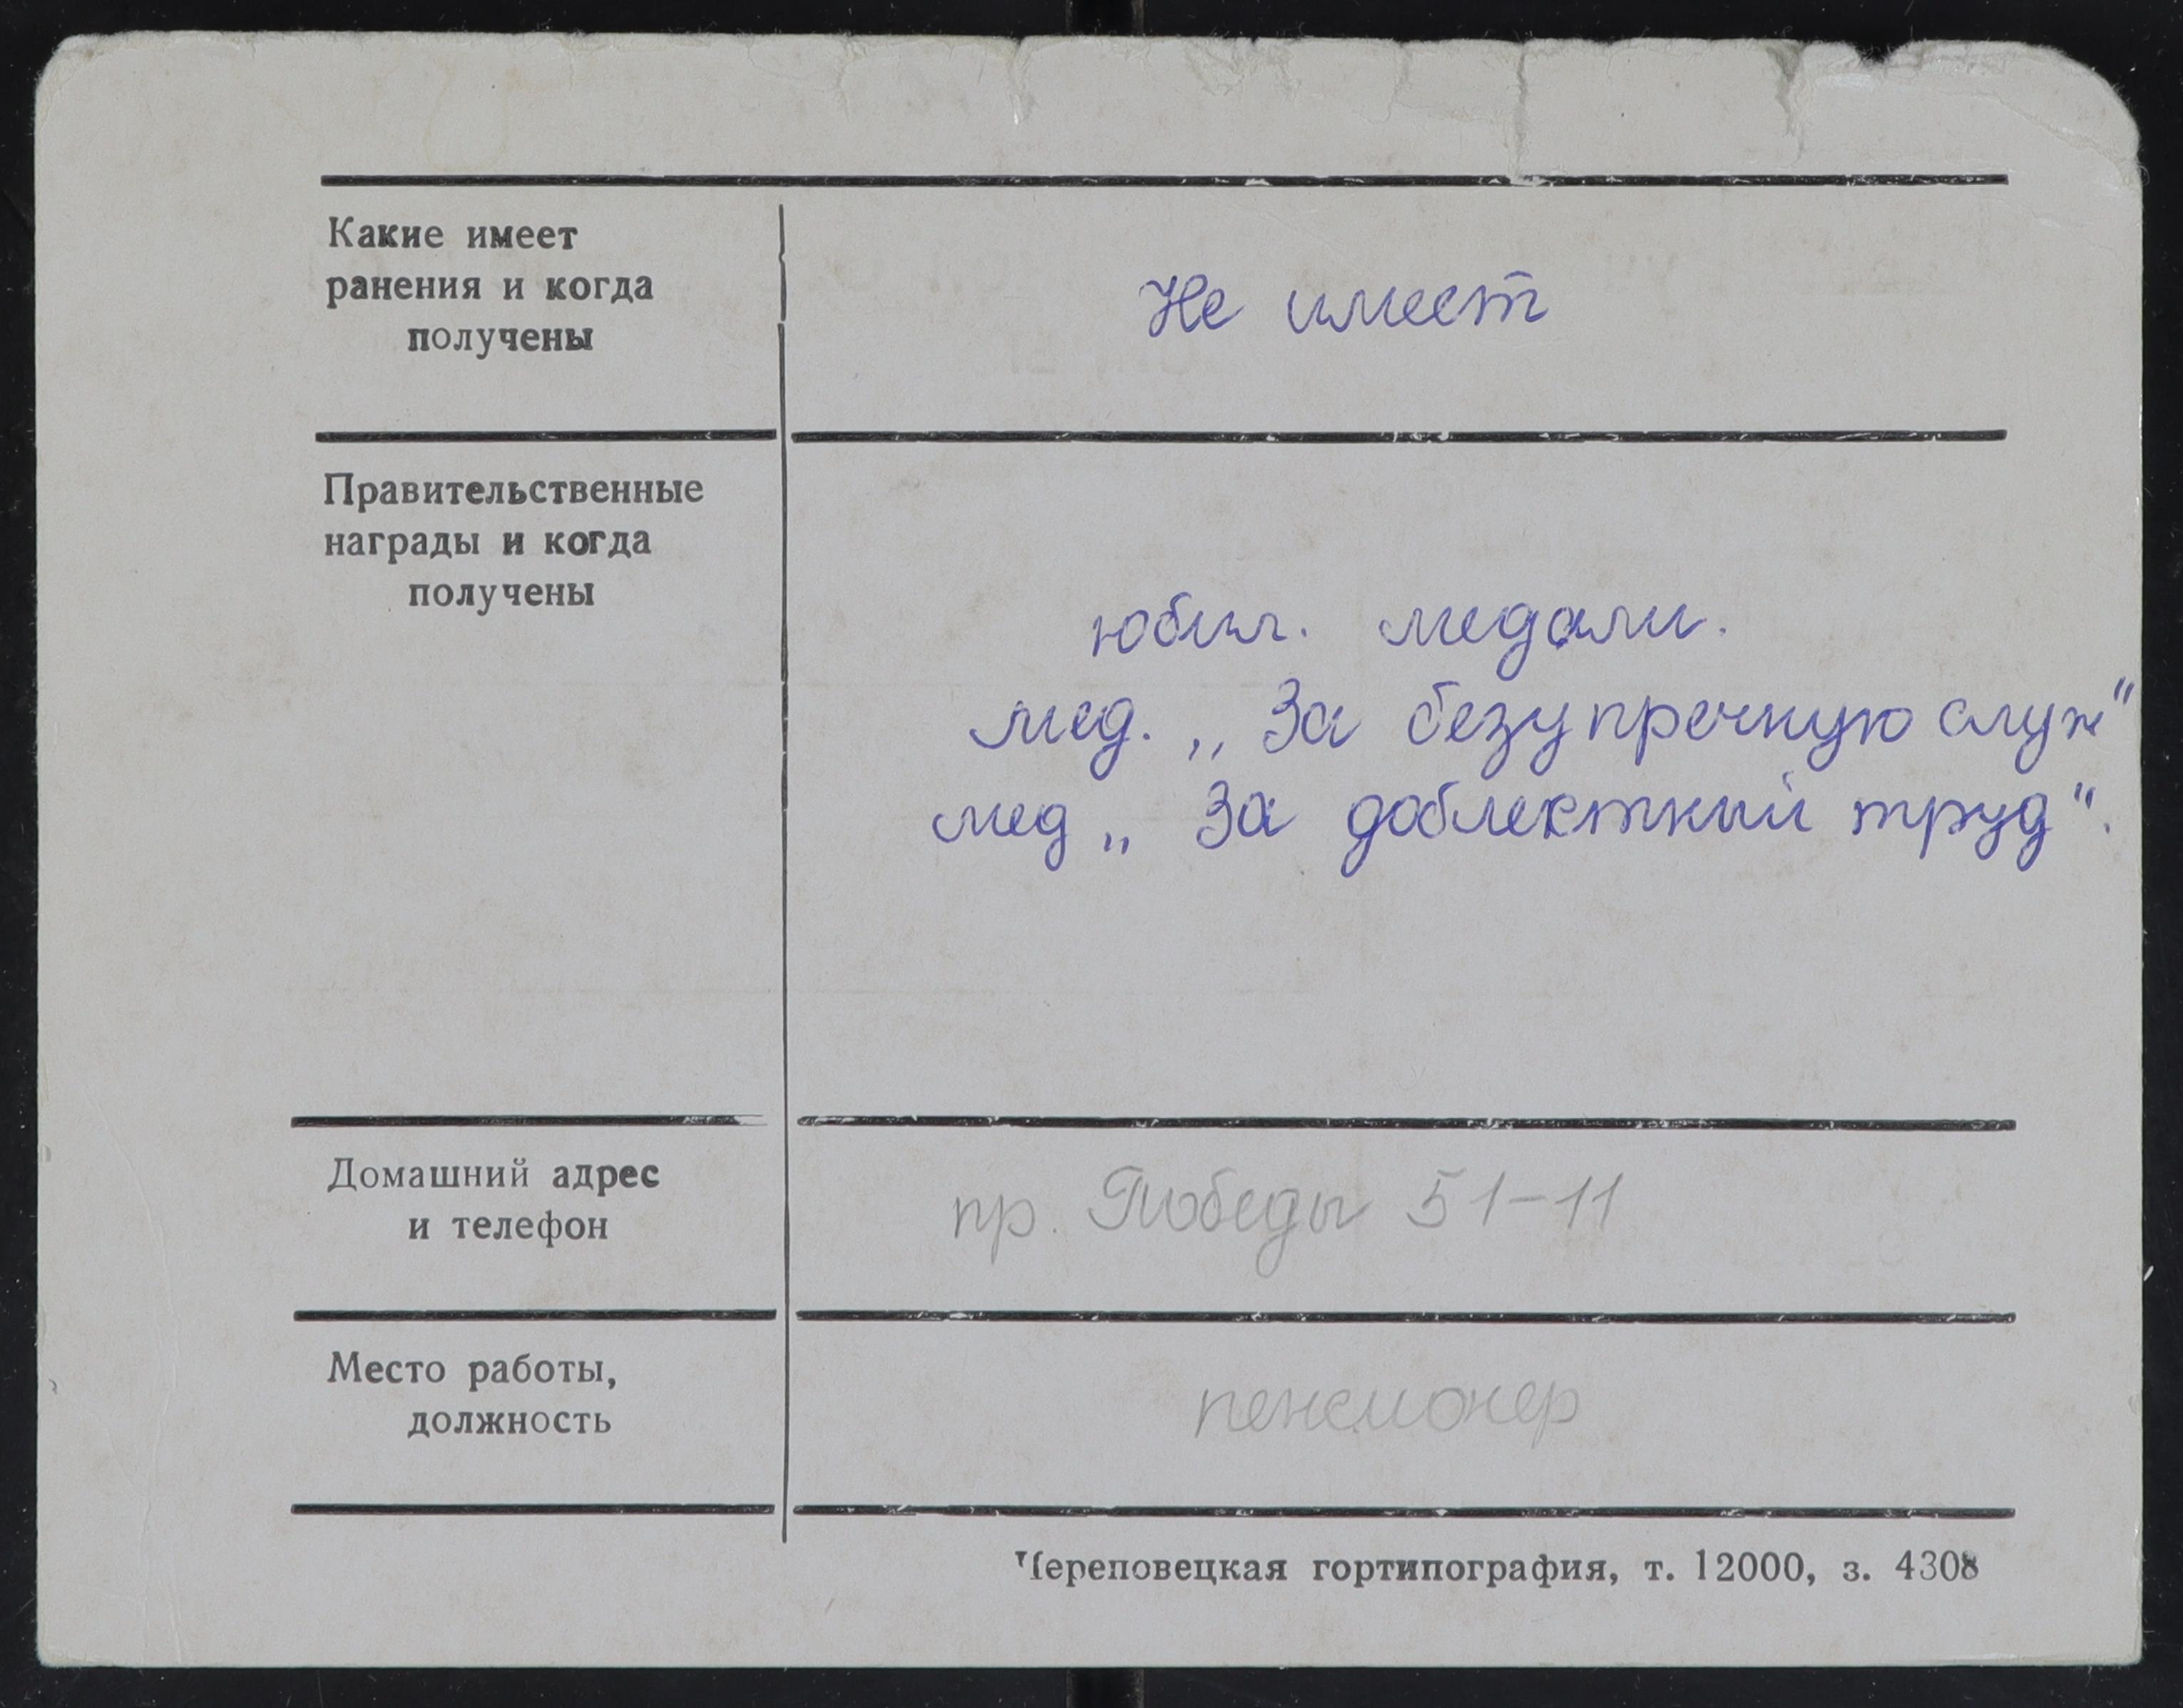 Какие имеет
ранения и когда
получены
Не имеет
Правительственные
награды и когда
получены
юбил. медали.
мед. „За безупречную служ“
мед „За доблектный труд“.
Домашний адрес
и телефон
пр. Победы 51-11
Место работы,
должность
пенсионер
Череповецкая гортипография, т. 12000, з. 4308